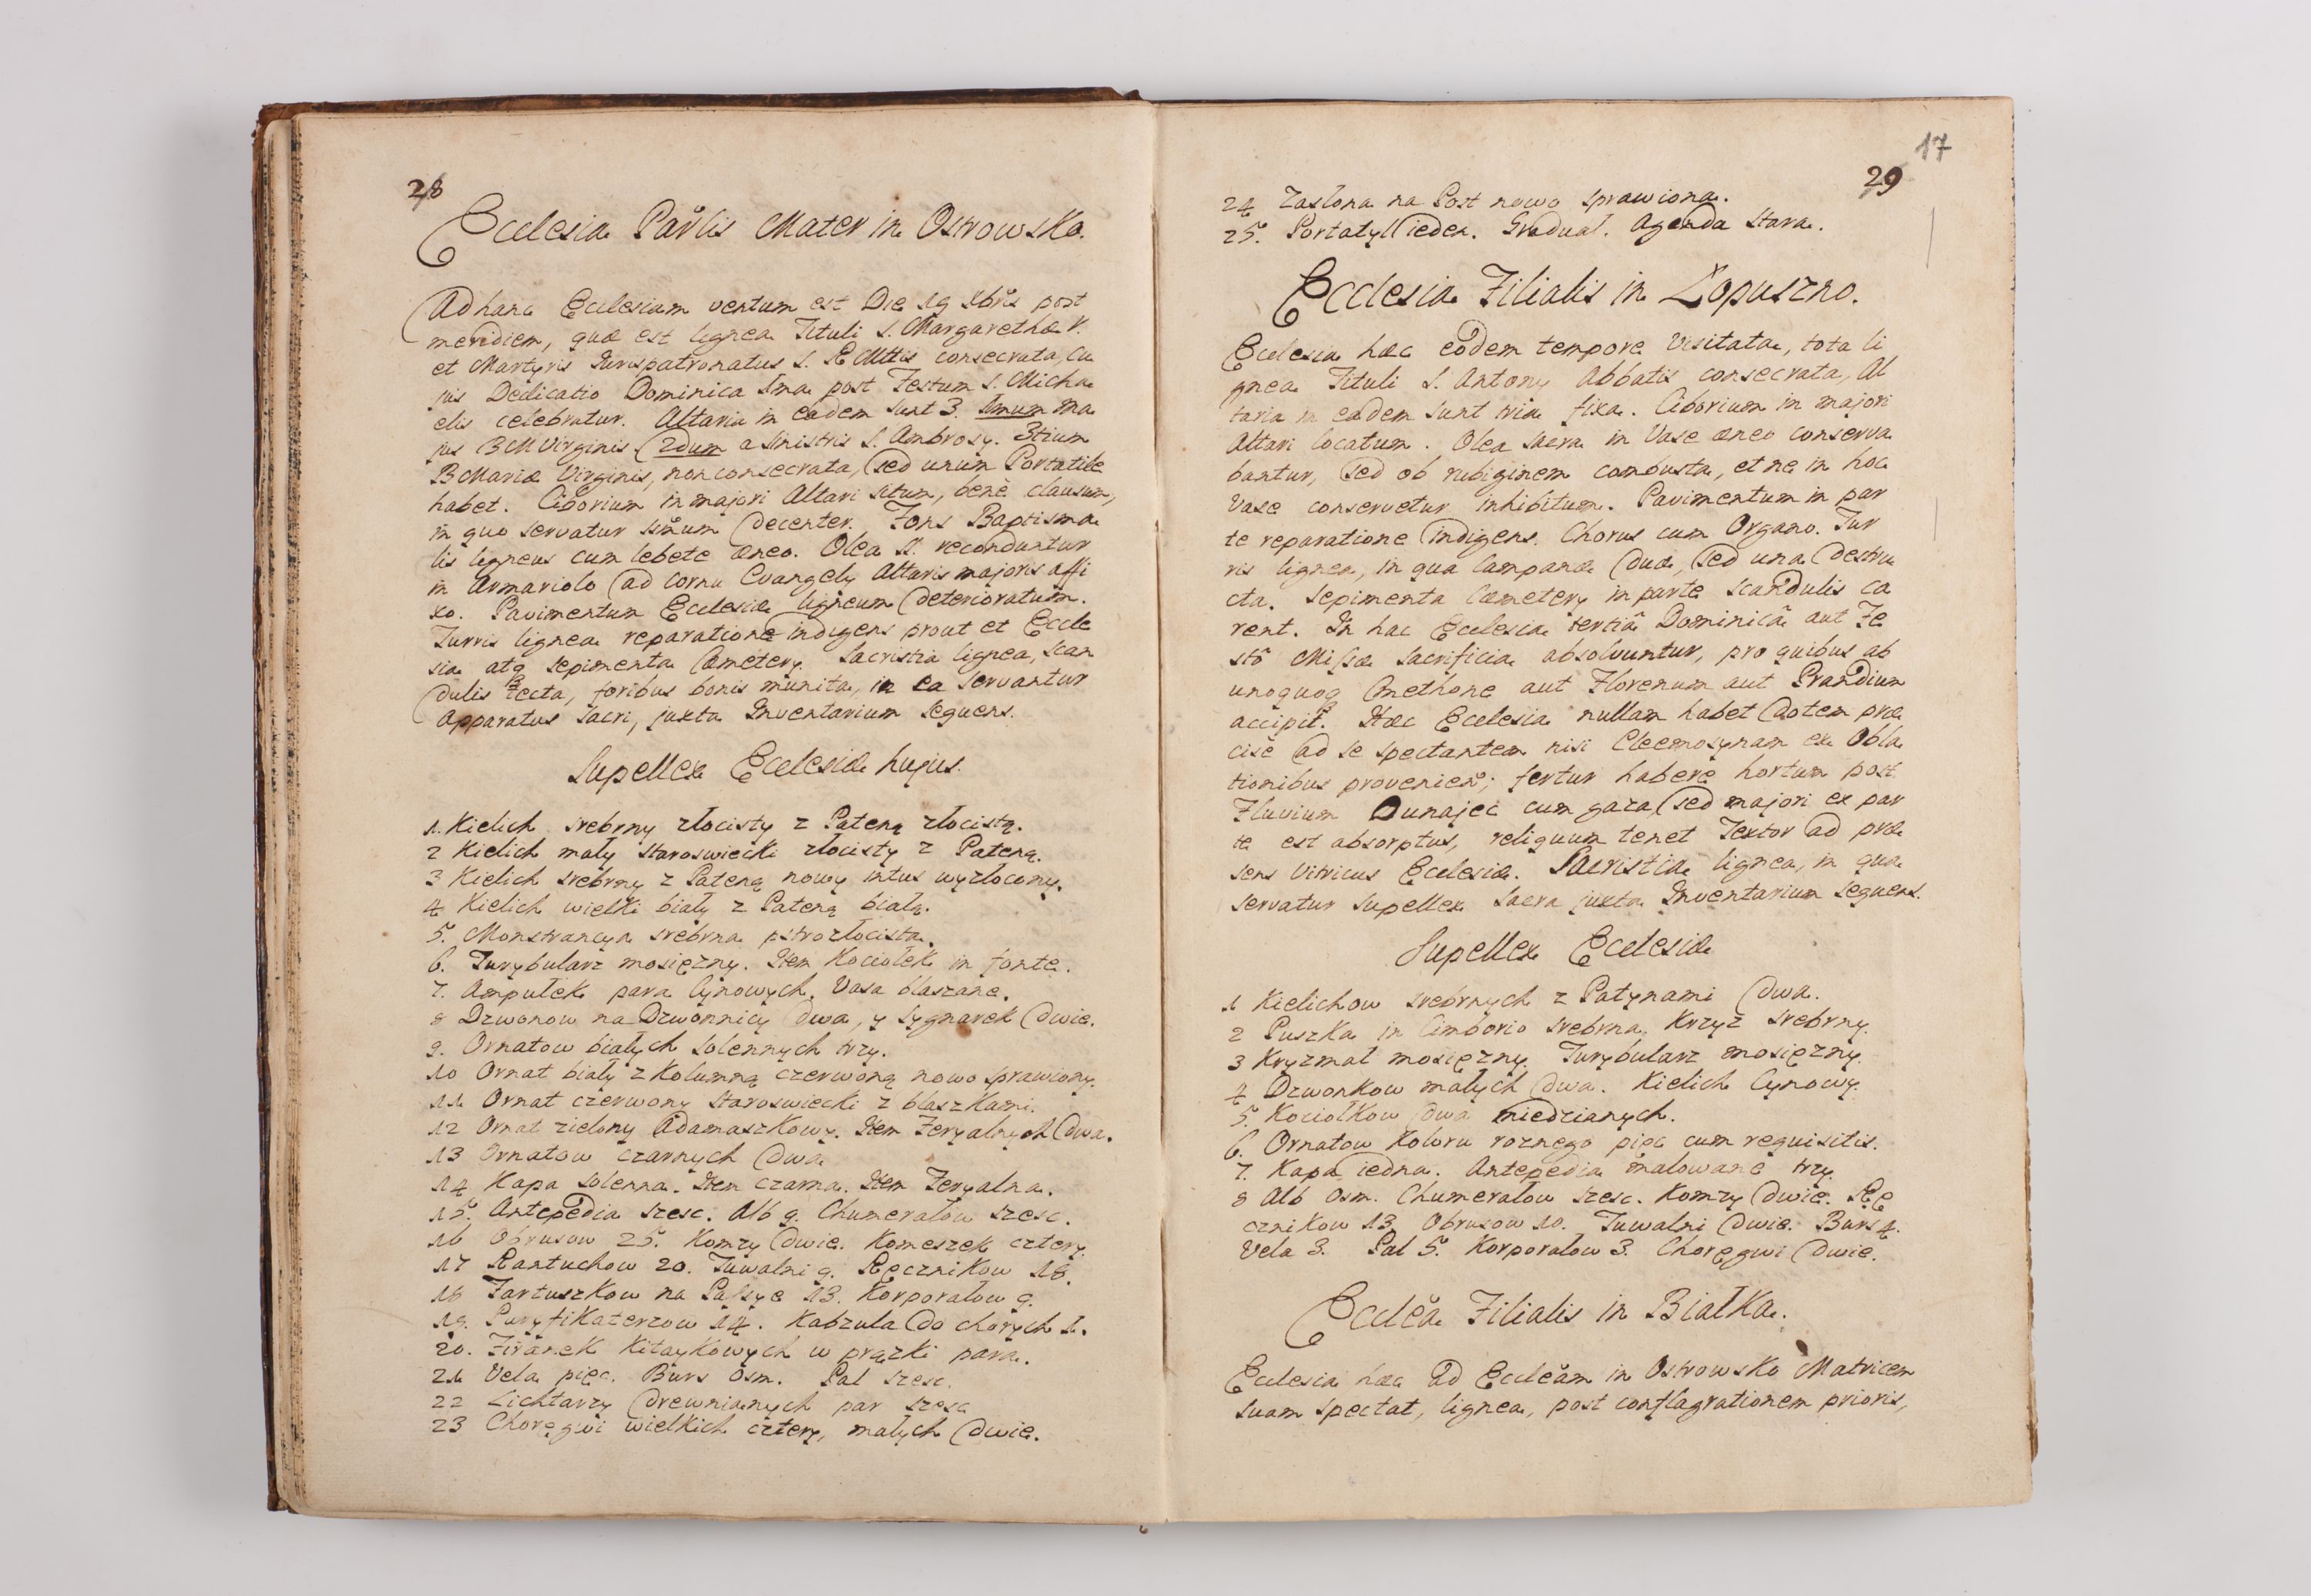 28
Ecclesia Parlis Mater in Ostrowsko.
Ad hanc Ecclesiam ventum est Die 19 Xbris post
meridiem, quæ est lignea Tituli S. Margarethæ V.
et Martyris Jurispatronatus S. R. Mttis consecrata, Cu
jus Dedicatio Dominica 1ma post Festum S. Micha
elis celebratur. Altaria in eadem sunt 3. 1mum ma
jus BM Virginis 2dum a sinistris S. Ambrosy. 3tium
B Mariæ Virginis, non consecrata, sed unum Portatile
habet. Ciborium in majori Altari situm, benè clausum,
in quo servatur decenter. Fons Baptisma
lis ligneus cum lebete æneo. Olea SS. reconduntur
in Armariolo ad cornu Evangely Altaris majoris affi
xo. Pavimentum Ecclesiæ ligneum deterioratum.
Turris lignea reparatione indigens prout et Eccle
sia atq sepimenta Cæmetery. Sacristia lignea, scan
dulis tecta, foribus bonis munita, in ea servantur
Apparatus Sacri, juxta Inventarium sequens.
Supellex Ecclesiæ hujus.
1. Kielich srebrny złocisty z Pateną złocistą.
2 Kielich mały staroswiecki złocisty z Pateną.
3 Kielich srebrny z Pateną nowy intus wyzłocony.
4 Kielich wielki biały z Pateną białą.
5. Monstrancya srebrna pstrozłocista.
6. Turybularz mosiężny. Item Kociołek in fonte.
7. Ampułek para Cynowych. Vasa blaszane.
8 Dzwonow na Dzwonnicy dwa, y Sygnarek dwie.
9. Ornatow białych solennych trzy.
10 Ornat biały z Kolumną czerwoną nowo sprawiony.
11 Ornat czerwony staroswiecki z blaszkami.
12 Ornat zielony Adamaszkowy. Item Feryalnych dwa.
13 Ornatow czarnych dwa
14 Kapa solenna. Item czarna. Item Feryalna.
15. Antepedia szesc. Alb 9. Chumerałow szesc.
16 Obrusow 25. Komży dwie. Komeszek cztery.
17 Rantuchow 20. Tuwalni 9. Ręcznikow 18.
18 Fartuszkow na Passye 13. Korporałow 9.
19. Puryfikaterzow 14. Kabzula do chorych 1.
20. Firanek Kitaykowych w prążki para.
21 Vela pięc. Burs osm. Pal szesc.
22 Lichtarzy drewnianych par szesc
23 Choręgwi wielkich cztery, małych dwie.
17
29
24 Zasłona na Post nowo sprawiona.
25. Portatyl ieden. Gradual. Agenda stara.
Ecclesia Filialis in Łopuszno.
Ecclesia hæc eodem tempore visitata, tota li
gnea Tituli S. Antony Abbatis consecrata, Al
taria in eadem sunt tria fixa. Ciborium in majori
Altari locatum. Olea sacra in Vase æneo conserva
bantur, sed ob rubiginem combusta, et ne in hoc
Vase conservetur inhibitum. Pavimentum in par
te reparatione indigens. Chorus cum Organo. Tur
ris lignea, in qua Campanæ duæ, sed una destru
cta. Sepimenta Cæmetery in parte scandulis ca
rent. In hac Ecclesia tertiâ Dominicâ aut Fe
stô Missæ sacrificia absolvuntur, pro quibus ab
unoquoq Cmethone aut Florenum aut Prandium
accipit. Hæc Ecclesia nullam habet dotem præ
cisè ad se spectantem nisi Eleemosynam ex Obla
tionibus provenien; fertur habere hortum post
Fluvium Dunajec cum gaza, sed majori ex par
te est absorptus, reliquum tenet Textor ad præ
sens Vitricus Ecclesiæ. Sacristia lignea, in qua
servatur Supellex Sacra juxta Inventarium sequens.
Supellex Ecclesiæ
1 Kielichow srebrnych z Patynami dwa.
2 Puszka in Cimborio srebrna, Krzyż srebrny.
3 Kryzmal mosiężny. Turybularz mosiężny.
4 Dzwonkow małych dwa. Kielich Cynowy.
5. Kociołkow dwa miedzianych.
6. Ornatow Koloru roznego pięc cum requisitis.
7. Kapa iedna. Antepedia malowane trzy.
8 Alb osm. Chumerałow szesc. Komży dwie. Rę
cznikow 13. Obrusow 10. Tuwalni dwie. Burs 4.
Vela 3. Pal 5. Korporałow 3. Choręgwi dwie.
Ecclea Filialis in Białka.
Ecclesia hæc ad Eccleam in Ostrowsko Matricem
suam spectat, lignea, post conflagrationem prioris,